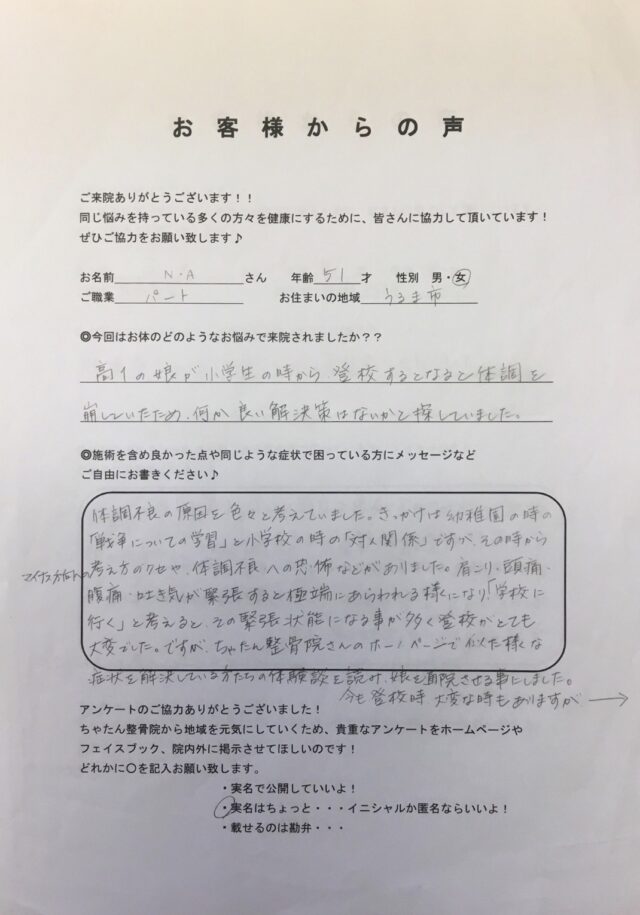 お客様からの声
ご来院ありがとうございます！！
同じ悩みを持っている多くの方々を健康にするために、皆さんに協力して頂いています！
ぜひご協力をお願い致します♪
お名前 N・A さん 年齢 51 才 性別 男・女
ご職業 パート お住まいの地域 うるま市
◎今回はお体のどのようなお悩みで来院されましたか？？
高1の娘が小学生の時から 登校するとなると体調を
崩していたため、何か良い解決策はないかと探していました。
◎施術を含め良かった点や同じような症状で困っている方にメッセージなど
ご自由にお書きください♪
体調不良の原因を色々と考えていました。きっかけは幼稚園の時の
「戦争についての学習」と小学校の時の「対人関係」ですが、その時から
マイナス方向への考え方のクセや、体調不良への恐怖などがありました。肩こり・頭痛・
腹痛・吐き気が緊張すると極端にあらわれる様になり「学校に
行く」と考えると、その緊張状態になる事が多く登校がとても
大変でした。ですが、ちゃたん整骨院さんのホームページで似た様な
症状を解決している方たちの体験談を読み、娘を通院させる事にしました。
今も登校時 大変な時もありますが→
アンケートのご協力ありがとうございました！
ちゃたん整骨院から地域を元気にしていくため、貴重なアンケートをホームページや
フェイスブック、院内外に掲示させてほしいのです！
どれかに〇を記入お願い致します。
・実名で公開していいよ！
・実名はちょっと・・・イニシャルか匿名ならいいよ！
・載せるのは勘弁・・・